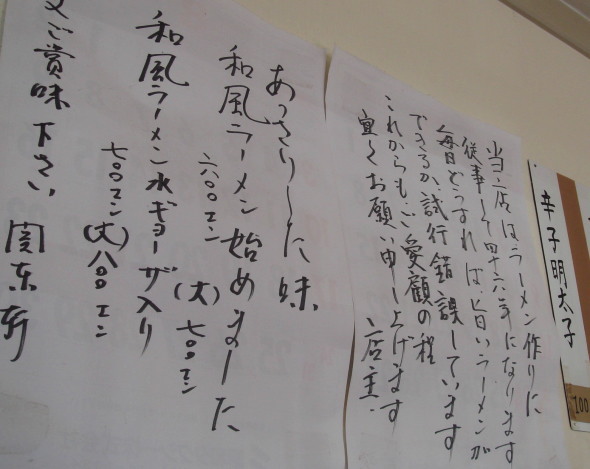 辛子明太子
100
当店はラーメン作りに
従事して四十六年になります
毎日どうすれば旨いラーメンが
できるか、試行錯誤しています
これからもご愛顧の程
宜しくお願い申し上げます
店主.
あっさりした味
和風ラーメン始めました
六〇〇エン (大) 七〇〇エン
和風ラーメン水ギョーザ入り
七〇〇エン (大) 八〇〇エン
ご賞味下さい 関東軒